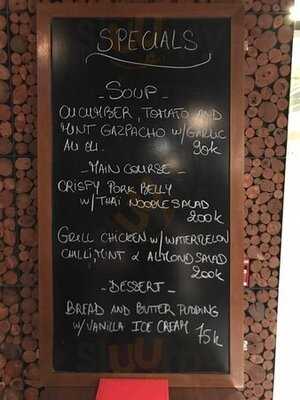 SPECIALS
- SOUP -
CUCUMBER, TOMATO AND
MINT GAZPACHO W/ GARLIC
ALI OLI. 90k
- MAIN COURSE -
CRISPY PORK BELLY
W/ THAI NOODLE SALAD
200k
GRILL CHICKEN W/ WATERMELON
CHILLI, MINT & ALMOND SALAD
200k
- DESSERT -
BREAD AND BUTTER PUDDING
W/ VANILLA ICE CREAM 75k